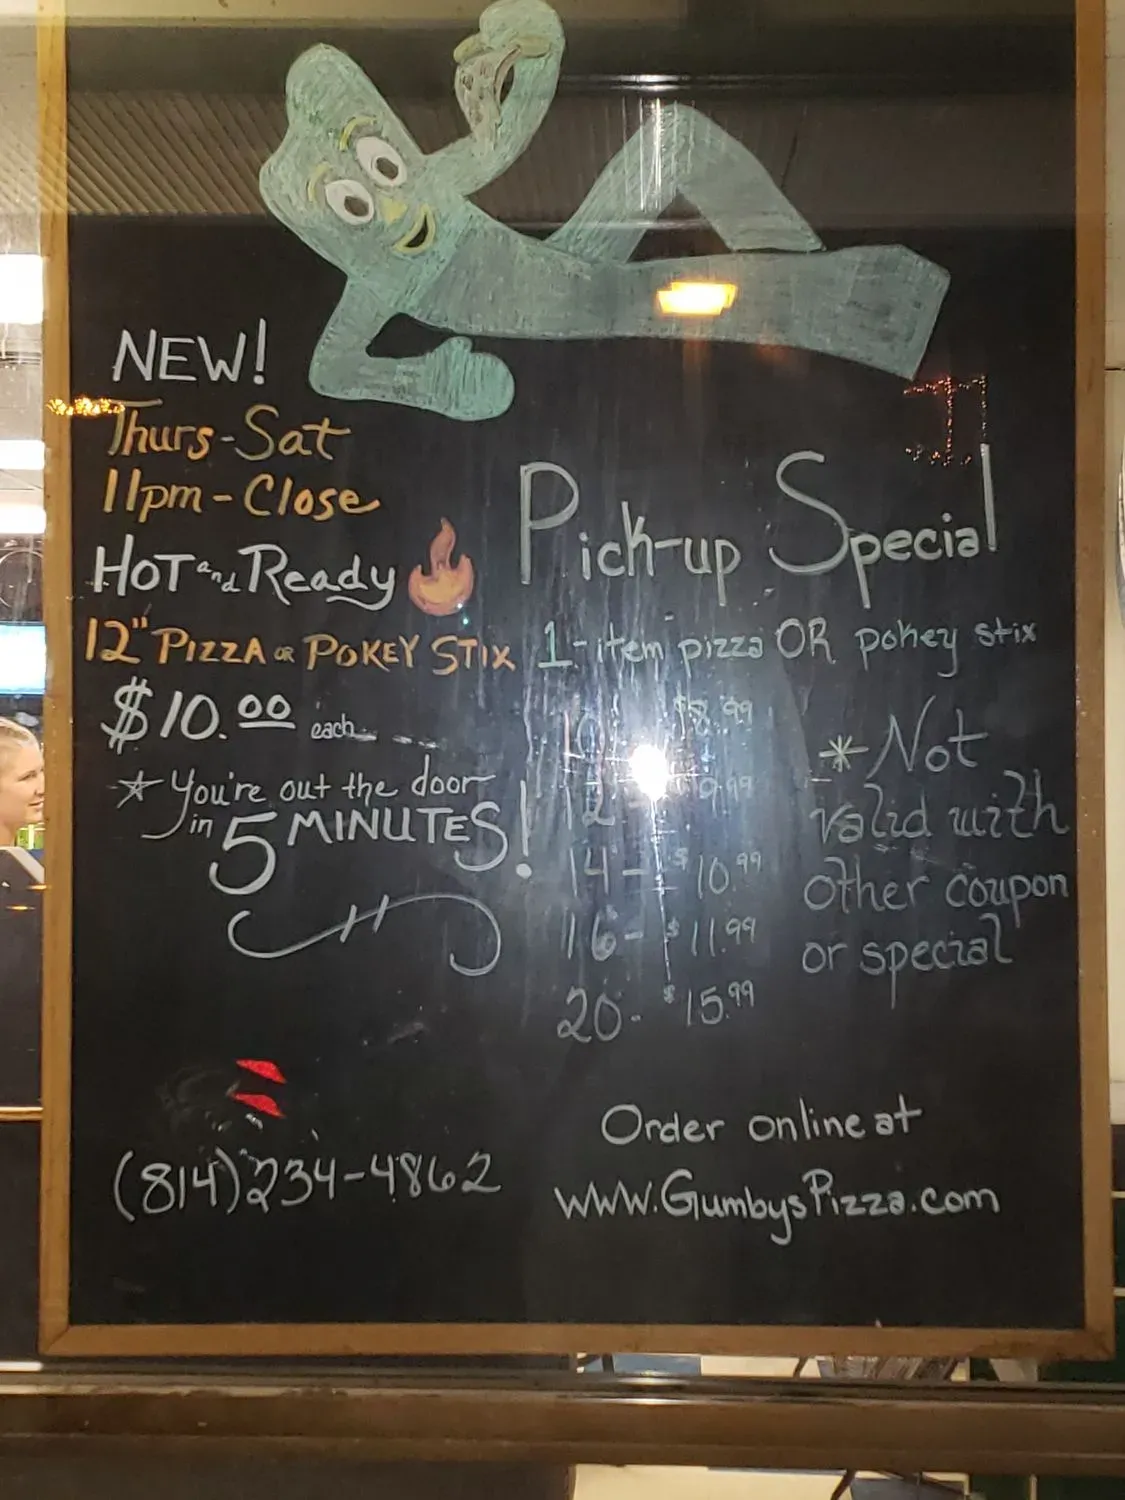 NEW!
Thurs-Sat
11pm-Close
HOT and Ready
12" PIZZA OR POKEY STIX
$10.00 each
* You're out the door
in 5 MINUTES!
(814)234-4862
Pick-up Special
1-item pizza OR pokey stix
10 - $8.99
12 - 9.99
14 - $10.99
16 - $11.99
20 - $15.99
* Not
valid with
other coupon
or special
Order online at
www.GumbysPizza.com